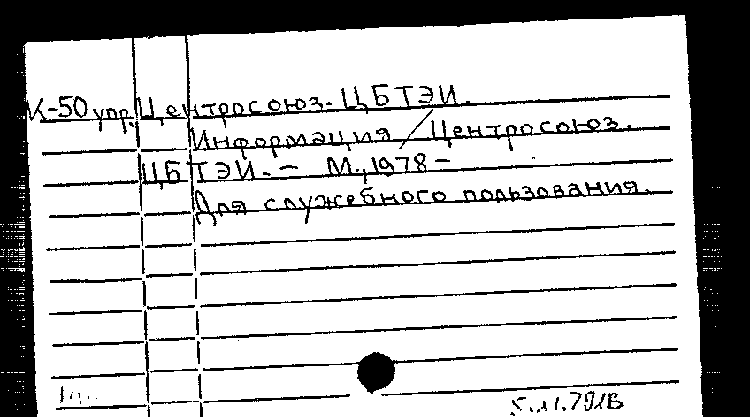 К-50 упр. Центросоюз. ЦБТЭИ.
Информация / Центросоюз.
ЦБТЭИ. – М., 1978 –
Для служебного пользования.